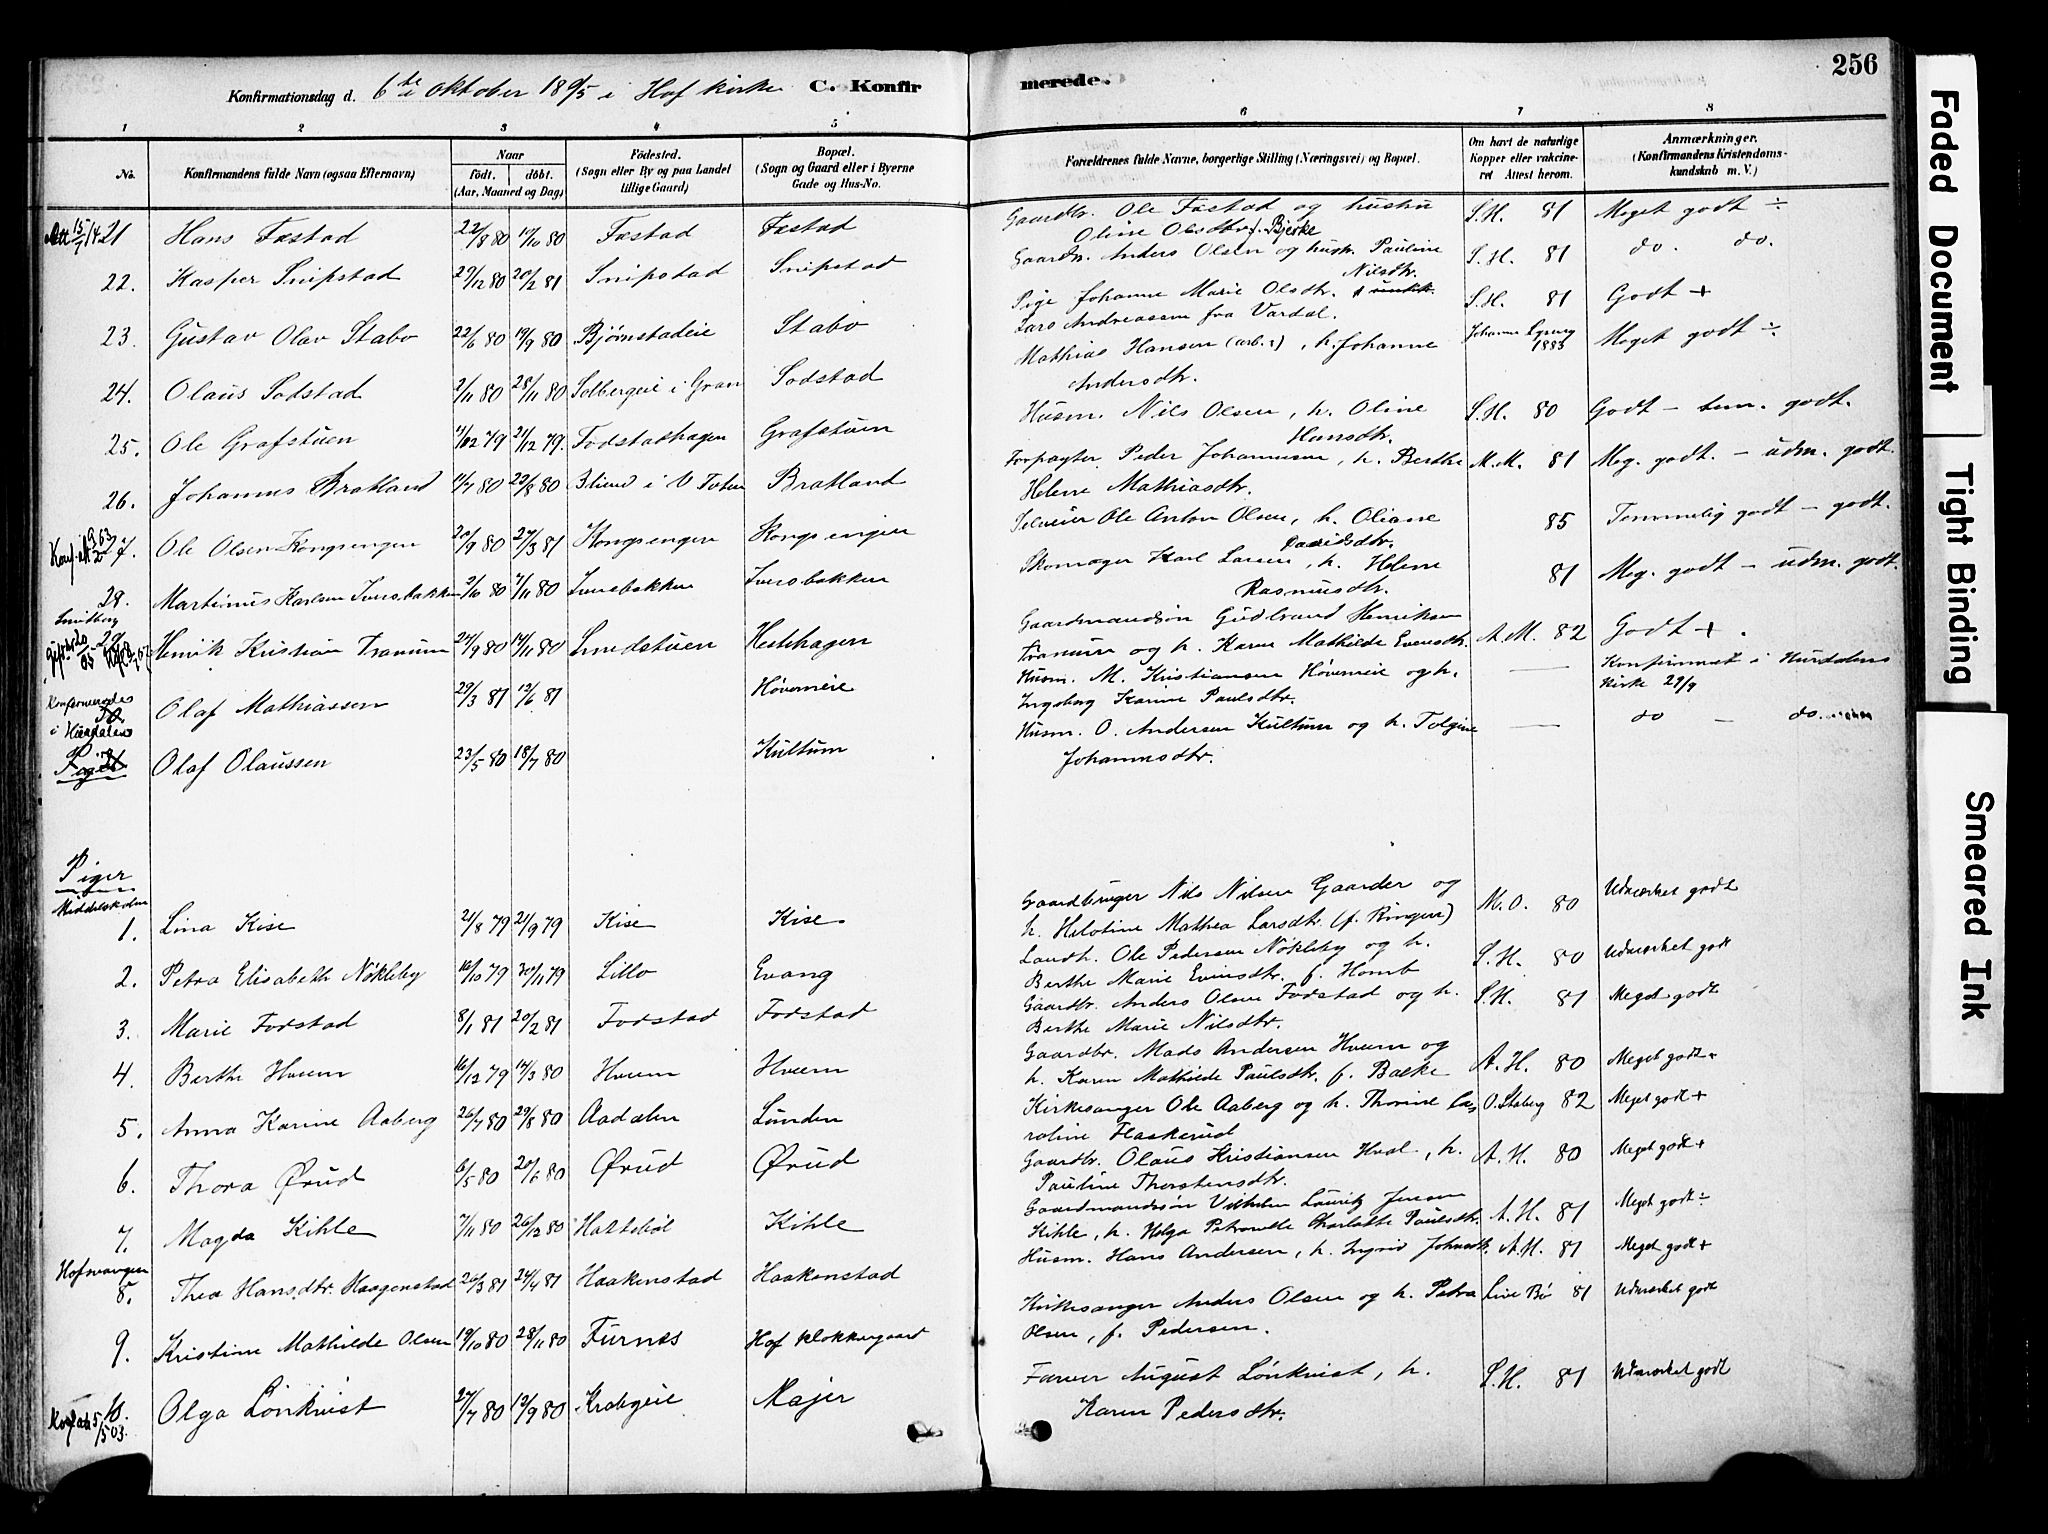 256
Konfirmationsdag d. 6te oktober 1895 i Hof kirke C. Konfirmerede.
1 2 3 4 5 6 7 8
No. Konfirmandens fulde Navn (ogsaa Efternavn) Naar født. døbt. (Aar, Maaned og Dag) Fødested. (Sogn eller By og paa Landet tillige Gaard) Bopæl. (Sogn og Gaard eller i Byerne Gade og Hus-No. Forældrenes fulde Navne, borgerlige Stilling (Næringsvei) og Bopæl. Om havt de naturlige Kopper eller vakcineret Attest herom. Anmærkninger. (Konfirmandens Kristendomskundskab m. V.)
Att 15/1 14 21 Hans Fæstad 22/8 80 17/10 80 Fæstad Fæstad Gaardbr. Ole Fæstad og hustru Oline Olsdtr. f. Bjerke S.H. 81 Meget godt ÷
22. Kasper Snipstad 29/12 80 20/2 81 Snipstad Snipstad Gaardbr. Anders Olsen og hustr. Pauline Nilsdtr. S.H. 81 do. do.
23. Gustav Olav Stabo 22/6 80 19/9 80 Bjørnstadeie Stabo Pige Johanne Marie Olsdtr. Lars Andreassen fra Vardal. S.H. 81 Godt +
24. Olaus Sodstad 2/11 80 28/11 80 Solbergeie i Gran Sodstad Mathias Hansen (arb.), h. Johanne Andersdtr. 1883 Meget godt ÷
25. Ole Grafstuen 11/12 79 21/12 79. Fodstadhagen Grafstuen Husm. Nils Olsen, h. Oline Hansdtr. S.H. 80 Godt – tem. godt.
26. Johannes Bratland 11/7 80 29/8 80 Blilund i V Toten Bratland Forpagter Peder Johannesen, h. Berthe Helene Mathiasdtr. M.M. 81 Meg. godt. – udm. godt.
27. Ole Olsen Kongsengen 20/9 80 27/3 81 Kongsengen Kongsengen Selveier Ole Anton Olsen, h. Oliane Davidsdtr. 85 Temmelig godt – godt.
28. Martinus Karlsen Iversbakken 3/10 80 7/11 80 Iversbakken Iversbakken Skomager Karl Larsen, h. Helene Rasmusdtr. 81 Meg. godt – udm. godt.
Smidborg
29 Henrik Kristian Tranum 24/9 80 14/11 80 Smedstuen Hestehagen Gaardmandsøn Gudbrand Henriksen Tranum og h. Karen Mathilde Evensdtr. A.M. 82 Godt +.
Konfirmerede i Hurdalens
30 Olaf Mathiassen 29/3 81 12/6 81 Høverneie Husm. M. Kristiansen Høverneie og h. Ingeborg Karine Paulsdtr. — Konfirmeret i Hurdalens kirke 29/9
31 Olaf Olaussen 23/5 80 18/7 80 Kultum Husm. O. Andersen Kultum og h. Tolgine Johannesdtr. — do – do.
Piger
Piger
Middelskolen
1. Lina Kise 21/8 79 21/9 79 Kise Kise Gaardbruger Nils Nilsen Gaarder og h. Helotine Mathea Larsdtr. (f. Ringen) M.O. 80 Udmærket godt
2. Petra Elisabeth Nøkleby 16/10 79 30/11 79 Lillo Evang Landh. Ole Pedersen Nøkleby og h. Berthe Marie Evensdtr. f. Homb S.H. 80 Udmærket godt
3. Marie Fodstad 8/1 81 20/2 81 Fodstad Fodstad Gaardbr. Anders Olsen Fodstad og h. Berthe Marie Nilsdtr. S.H. 81 Meget godt
4. Berthe Hveem 16/12 79 14/3 80 Hveem Hveem Gaardbr. Mads Andersen Hveem og h. Karen Mathilde Paulsdtr. f. Balke A.H. 80 Meget godt +
5. Anna Karine Aaberg 26/7 80 29/8 80 Aadalen Lunden Kirkesanger Ole Aaberg og h. Thorine Caroline Flaskerud O. Staberg 82 Meget godt +
6. Thora Ørud 6/5 80 20/6 80 Ørud Ørud Gaardbr. Olaus Kristiansen Hval, h. Pauline Thorstensdtr. A.H. 80 Meget godt +
7. Magda Kihle 7/11 80 26/12 80 Hattebøl Kihle Gaardmandssøn Vilhelm Lauritz Jensen Kihle, h. Helga Petronelle Charlotte Paulsdtr. A.H. 81 Meget godt ÷
Hofsvangen
8. Thea Hansdtr. Haagenstad 26/3 81 24/4 81 Haakenstad Haakenstad Husm. Hans Andersen, h. Ingrid Johnsdtr. A.H. 81 Meget godt +
9. Kristine Mathilde Olsen 19/10 80 28/11 80 Furnes Hof klokkergaard Kirkesanger Anders Olsen og h. Petra Olsen, f. Pedersen. Live Bø 81 Udmærket godt
10. Olga Lönkvist 27/7 80 12/9 80 Krabyeie Majer Farver August Lönkvist, h. Karen Pedersdtr. S.H. 81 Udmærket godt
Faded Document
Tight Binding
Smeared Ink